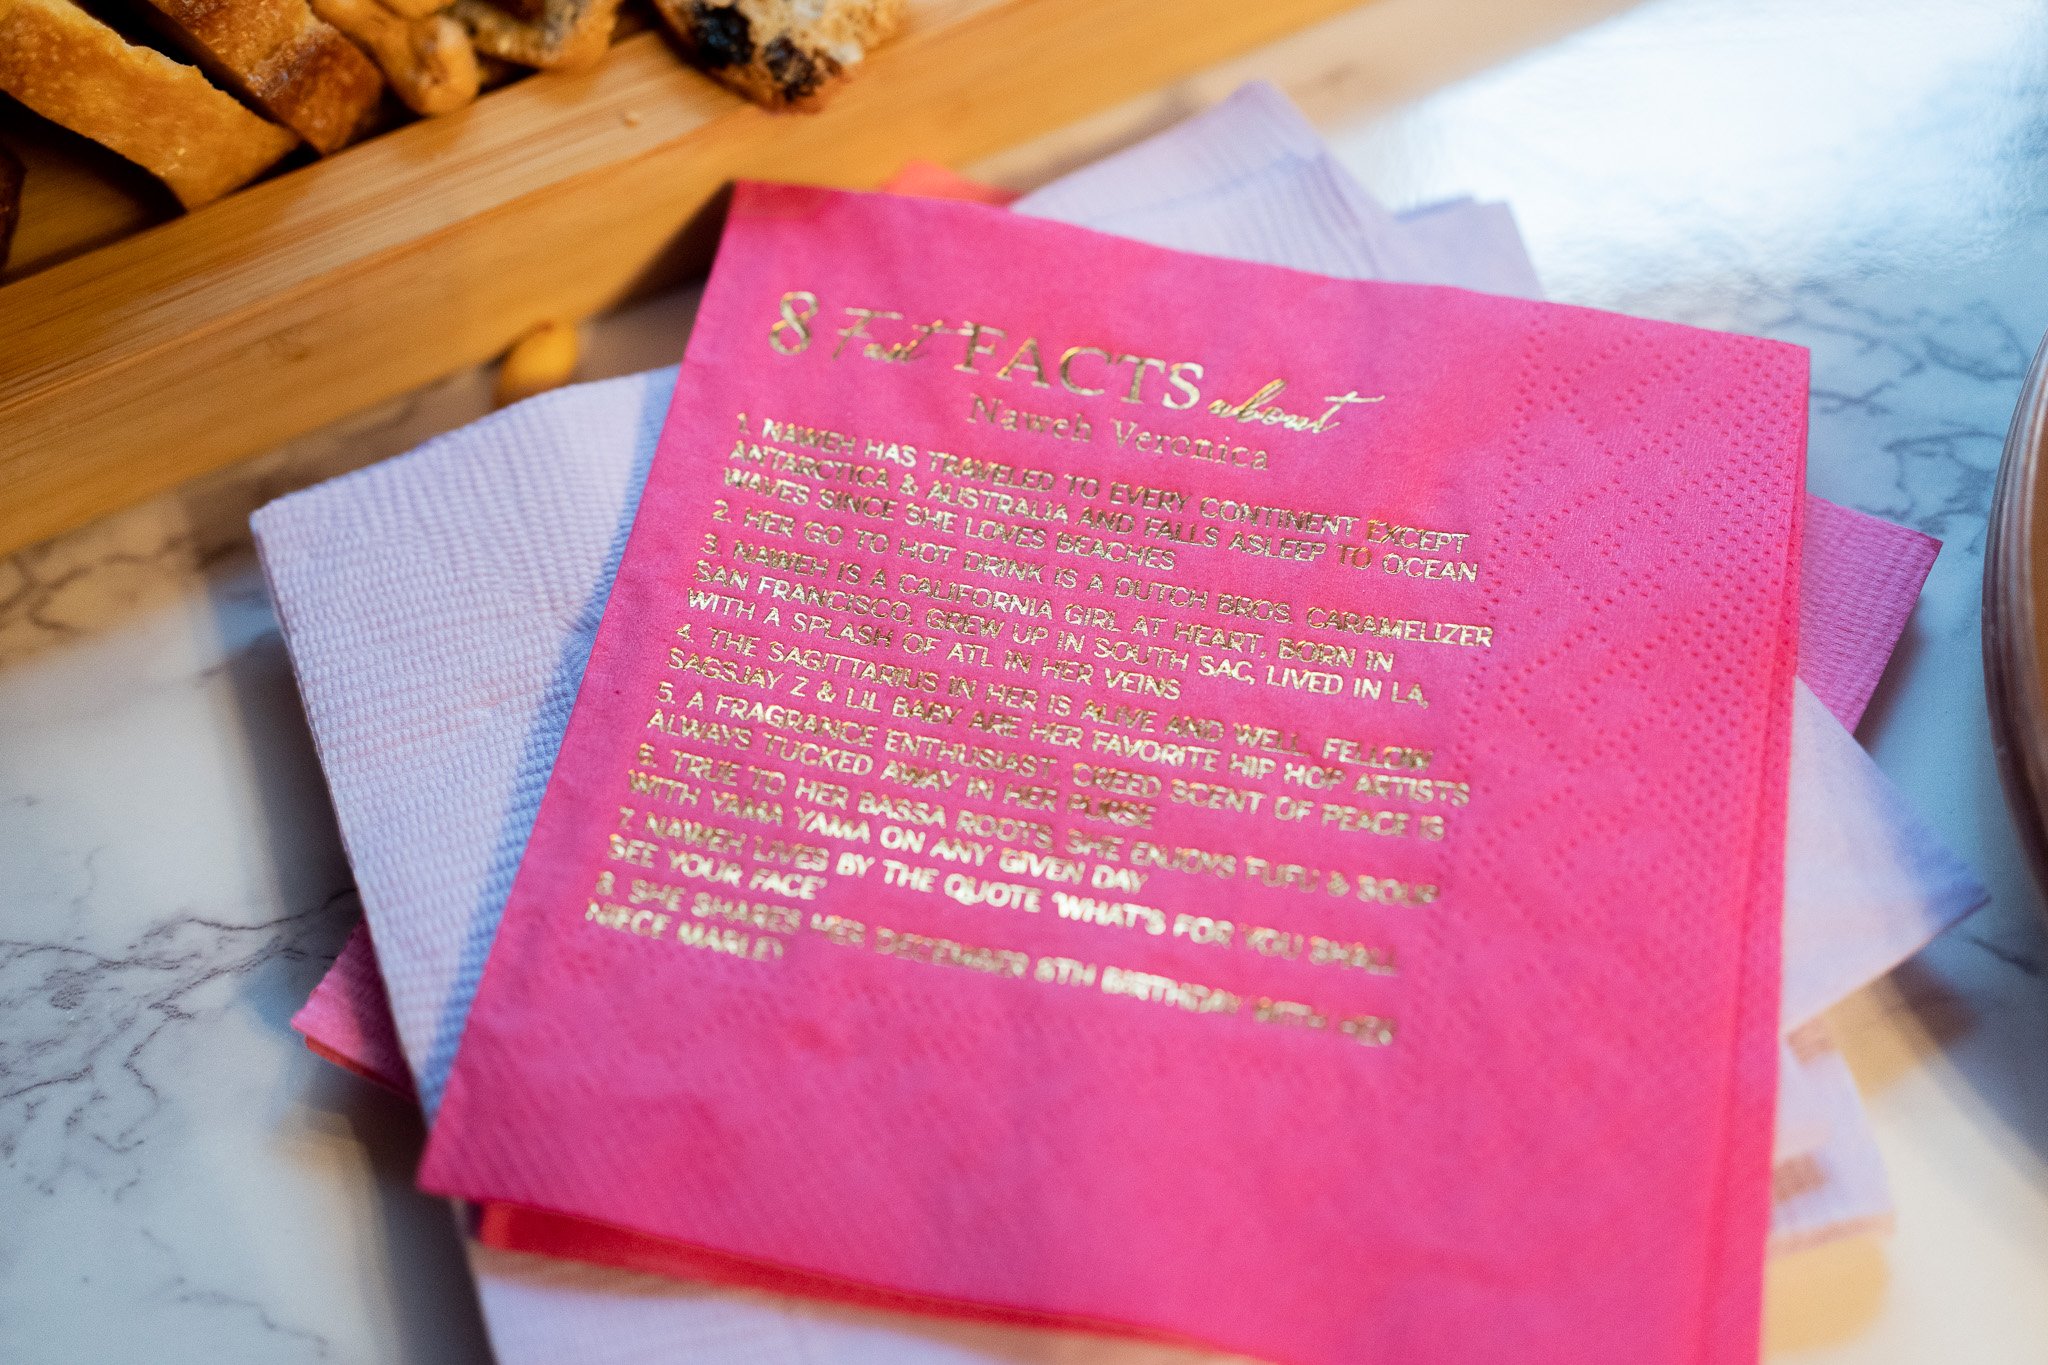 8 Fast FACTS about
Naweh Veronica
1. NAWEH HAS TRAVELED TO EVERY CONTINENT EXCEPT
ANTARCTICA & AUSTRALIA AND FALLS ASLEEP TO OCEAN
WAVES SINCE SHE LOVES BEACHES
2. HER GO TO HOT DRINK IS A DUTCH BROS. CARAMELIZER
3. NAWEH IS A CALIFORNIA GIRL AT HEART, BORN IN
SAN FRANCISCO, GREW UP IN SOUTH SAC, LIVED IN LA,
WITH A SPLASH OF ATL IN HER VEINS
4. THE SAGITTARIUS IN HER IS ALIVE AND WELL, FELLOW
SAGSJAY Z & LIL BABY ARE HER FAVORITE HIP HOP ARTISTS
5. A FRAGRANCE ENTHUSIAST, CREED SCENT OF PEACE IS
ALWAYS TUCKED AWAY IN HER PURSE
6. TRUE TO HER BASSA ROOTS, SHE ENJOYS FUFU & SOUP
WITH YAMA YAMA ON ANY GIVEN DAY
7. NAWEH LIVES BY THE QUOTE 'WHAT'S FOR YOU SHALL
SEE YOUR FACE'
8. SHE SHARES HER DECEMBER 8TH BIRTHDAY WITH HER
NIECE MARLEY